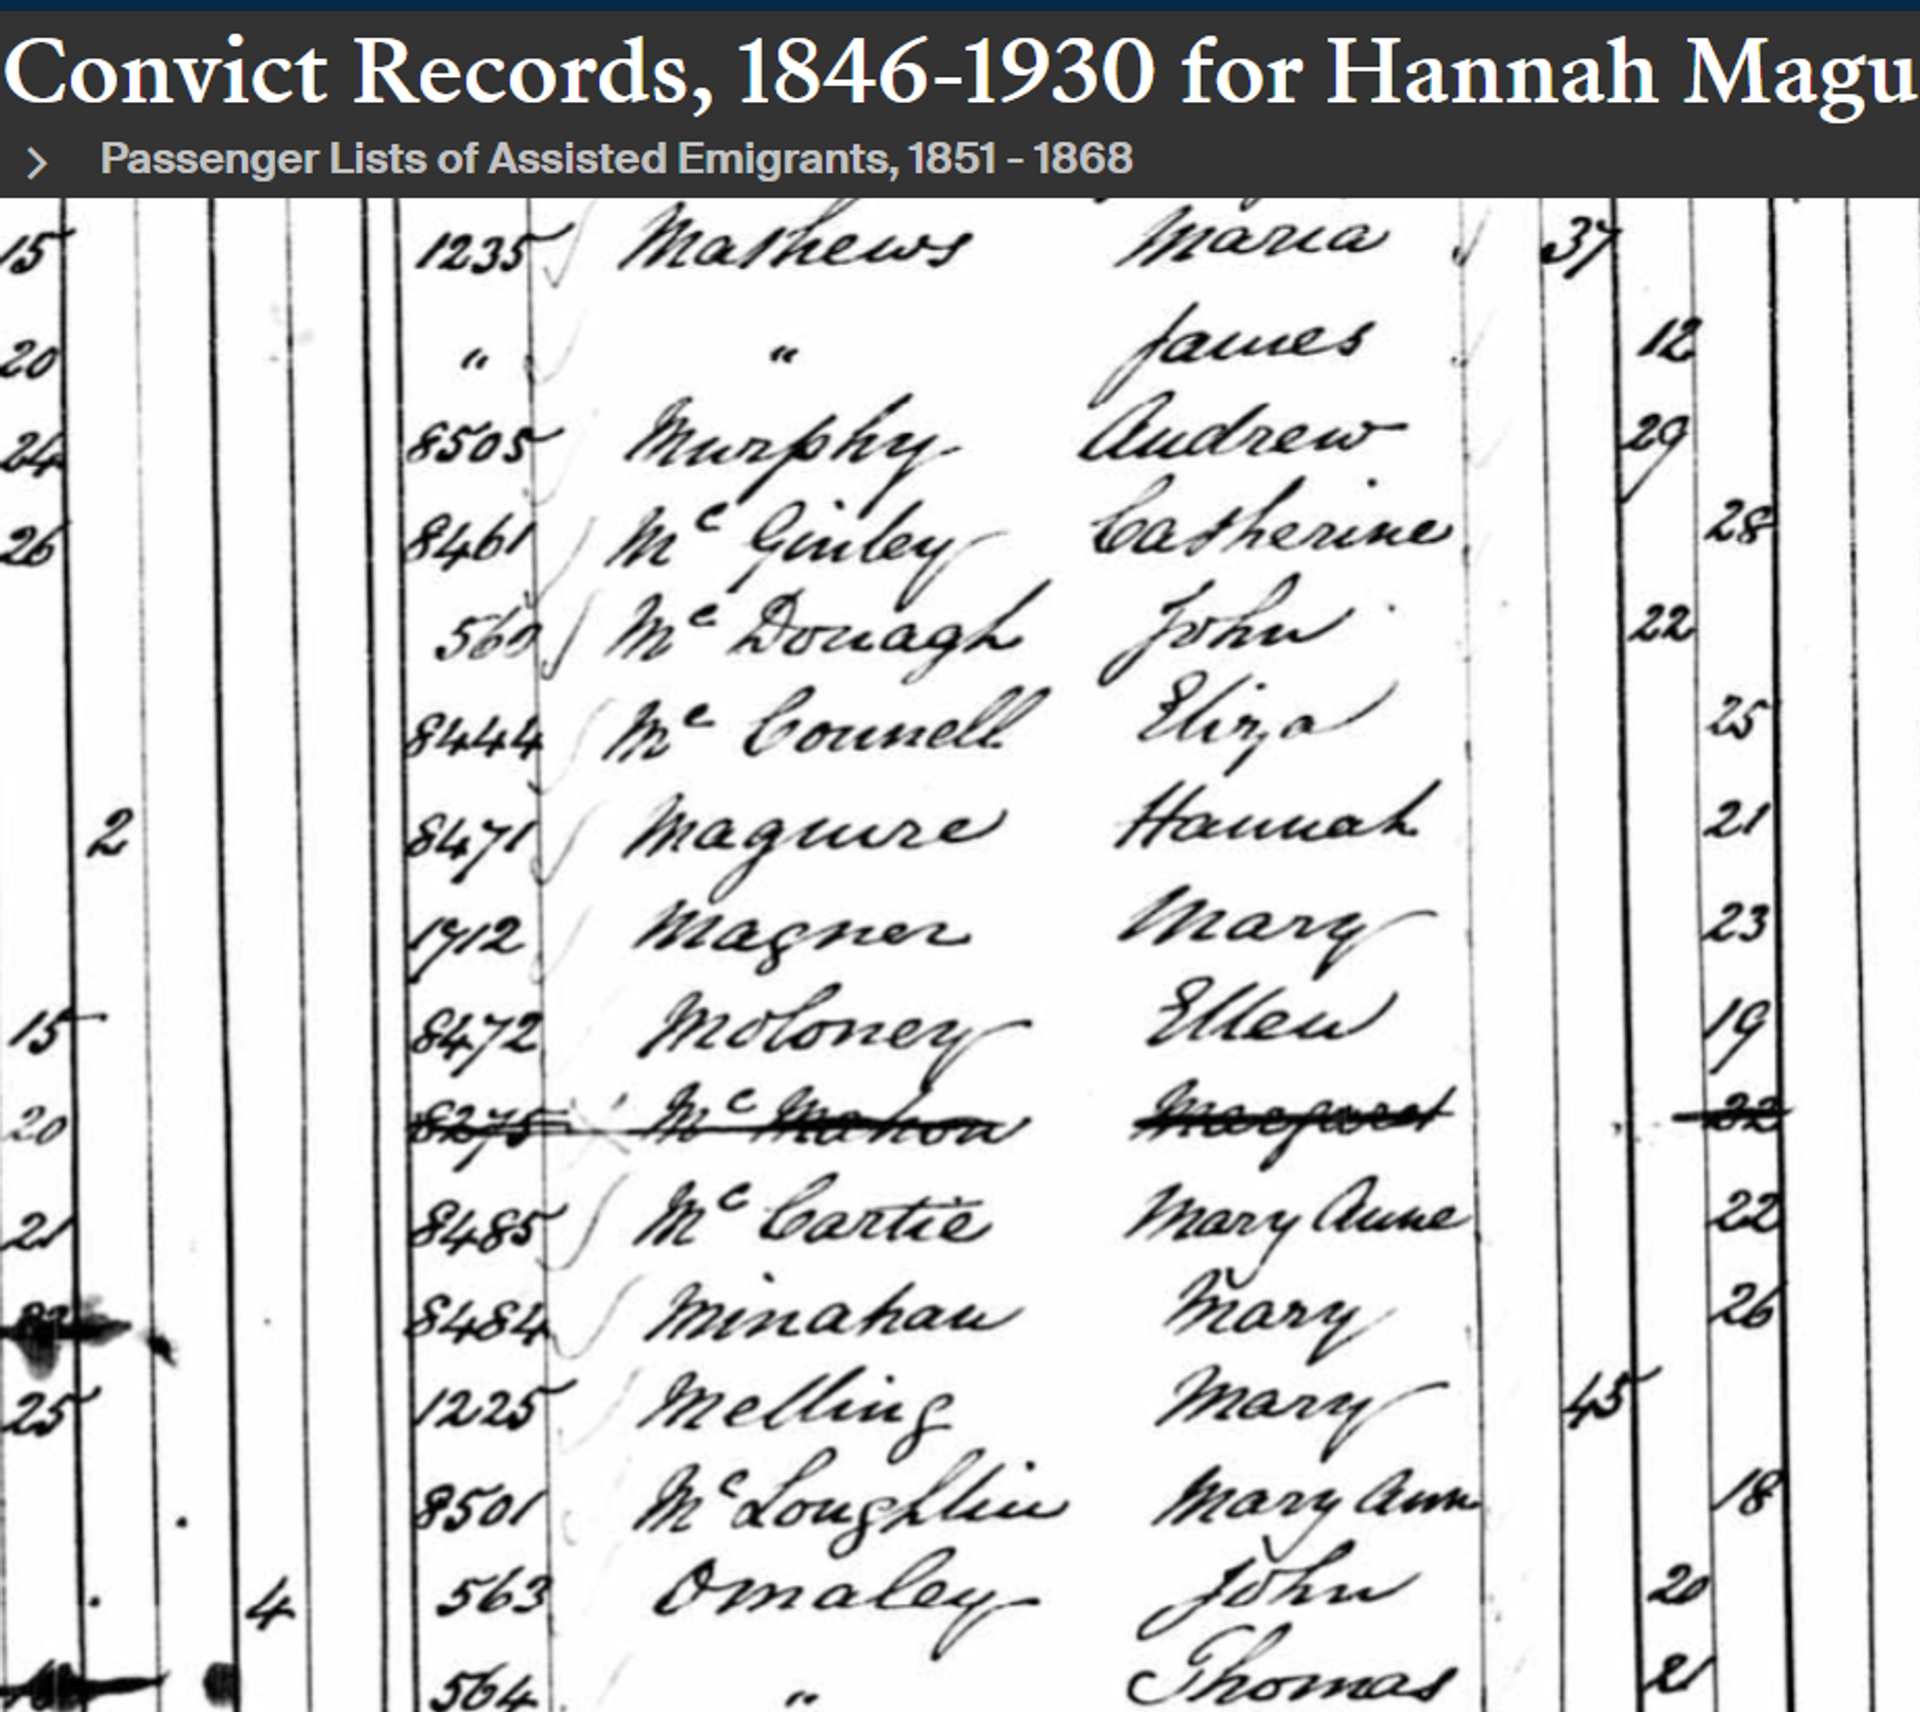 Convict Records, 1846-1930 for Hannah Magu
Passenger Lists of Assisted Emigrants, 1851 - 1868
15 1235 Mathews Maria 37
20 " " James 12
24 8505 Murphy Andrew 29
26 8461 Mc Ginley Catherine 28
Mc Donagh John 22
8444 Mc Connell Eliza 25
2 8471 Maguire Hannah 21
1712 Magner Mary 23
15 8472 Moloney Ellen 19
20 8275 Mc Mahon Margaret 22
21 8485 Mc Cartie Mary Anne 22
8484 Minahan Mary 26
25 1225 Melling Mary 45
8501 Mc Loughlin Mary Ann 18
4 563 Omaley John 20
564 " Thomas 21